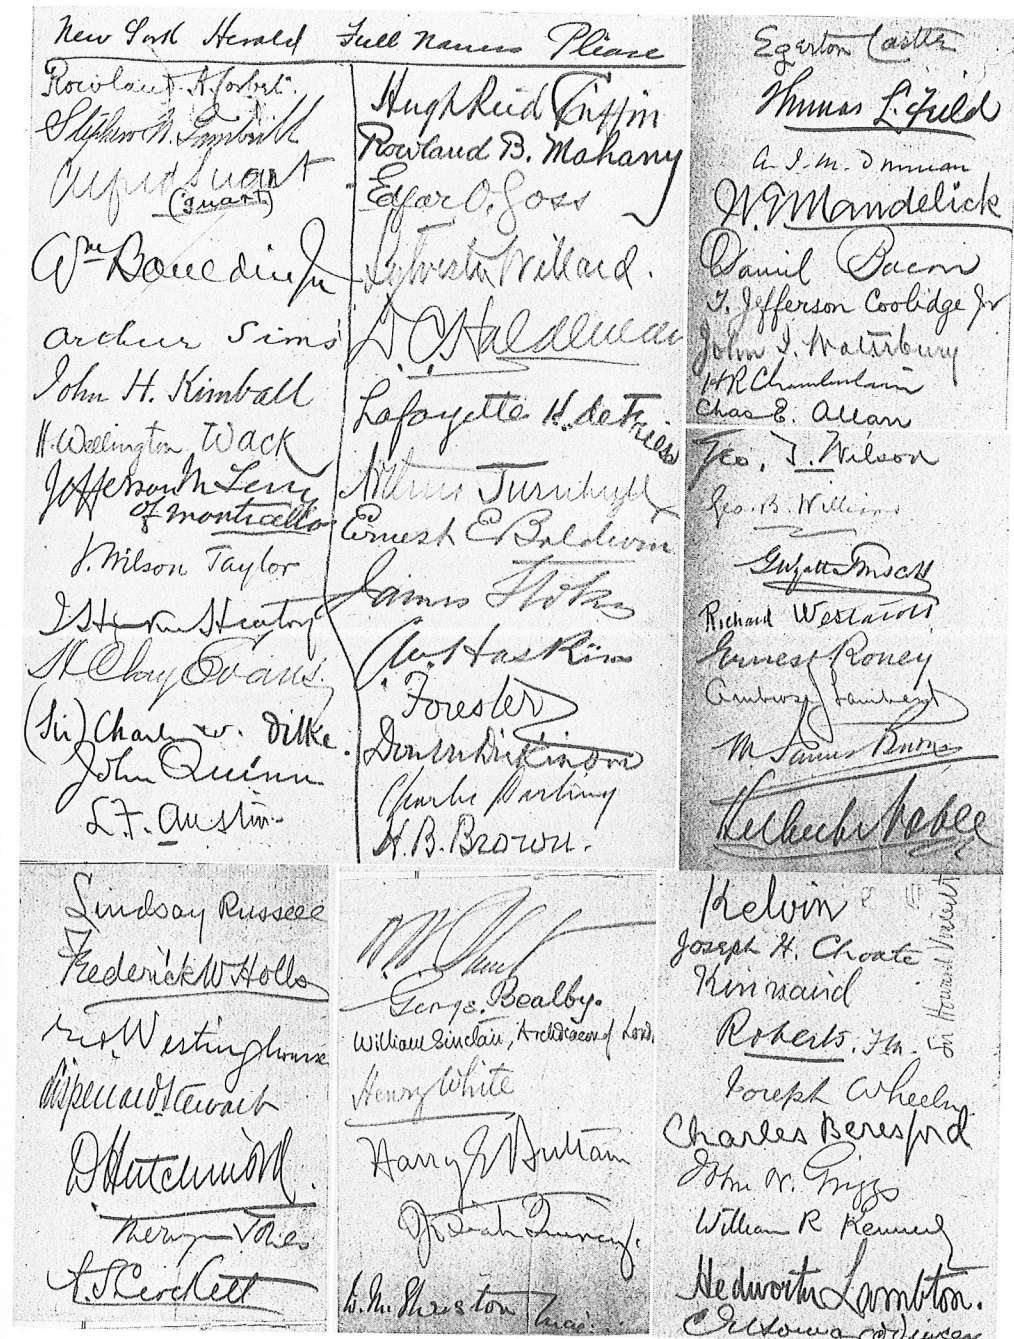 New York Herald Full Names Please
Rowland A. Corbet.
Stephen W.
Alfred Suart
(Suart)
Wm Bouldin Jr
Arthur Sims
John H. Kimball
H. Wellington Wack
Jefferson M Levy
of Monticello
J. Wilson Taylor
J Henniker Heaton
H Clay Evans
(Sir) Charles W. Dilke.
John Quinn
L. F. Austin
Hugh Reid Griffin
Rowland B. Mahany
Edgar O. Goss
Sylvester Willard.
D. C. Haldeman
Lafayette H. de Friese
Wilmer Turnbull
Ernest E Baldwin
James Stokes
Haskins
Forester
Don M Dickinson
Charles Darling
H. B. Brown.
Egerton Castle
Thomas L. Feild
Daniel Bacon
T. Jefferson Coolidge Jr
John I. Waterbury
H R Chamberlain
Chas E. Allan
Geo. T. Wilson
Geo. B. Williams
Richard Westacott
Ernest Roney
Ambrose Lambert
M.
Lindsay Russell
Frederick W Holls
Geo Westinghouse
Lispenard Stewart
D Hutchinson.
A. S. Crockett
George Bealby.
William Sinclair, Archdeacon of Lond.
Henry White
Harry J Brittain
Josiah Quincy.
Kelvin
Joseph H. Choate
Kinnaird
Roberts. F.M.
Joseph Wheeler
Charles Beresford
John W. Griggs
William R Kennedy
Hedworth Lambton.
Sir Howard Vincent